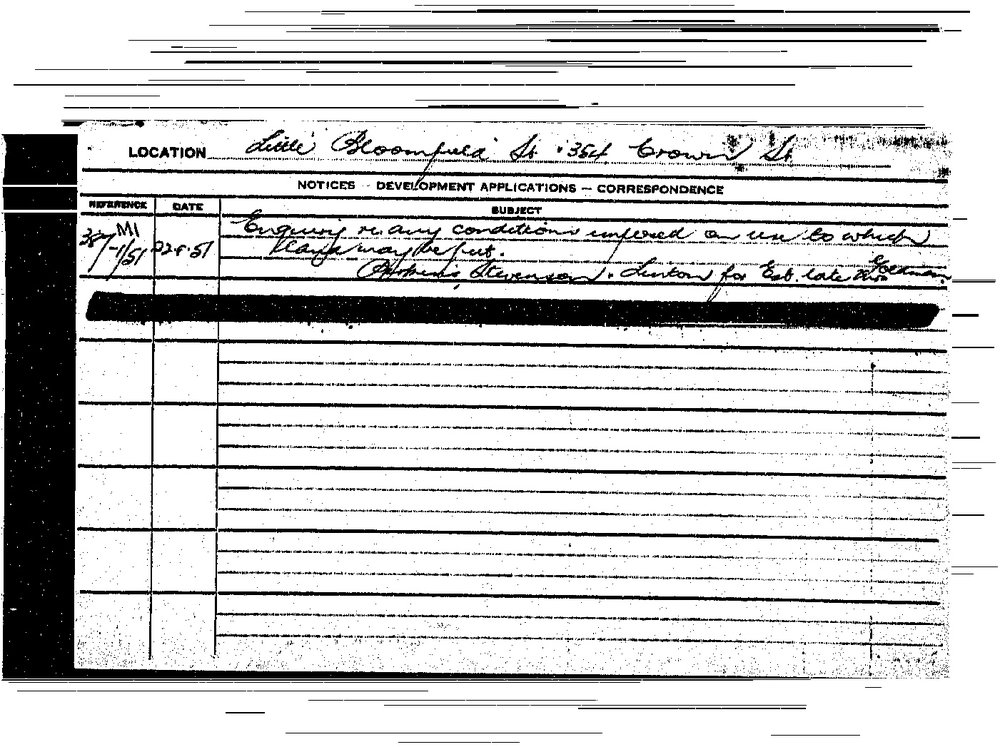 LOCATION Little Bloomfield St. 354 Crown St
NOTICES - DEVELOPMENT APPLICATIONS - CORRESPONDENCE
REFERENCE DATE SUBJECT
MI
387-1/51 22.8.51 Enquiry re any conditions imposed on use to which
may be put.
Stevenson. Linton for Est. late Mrs